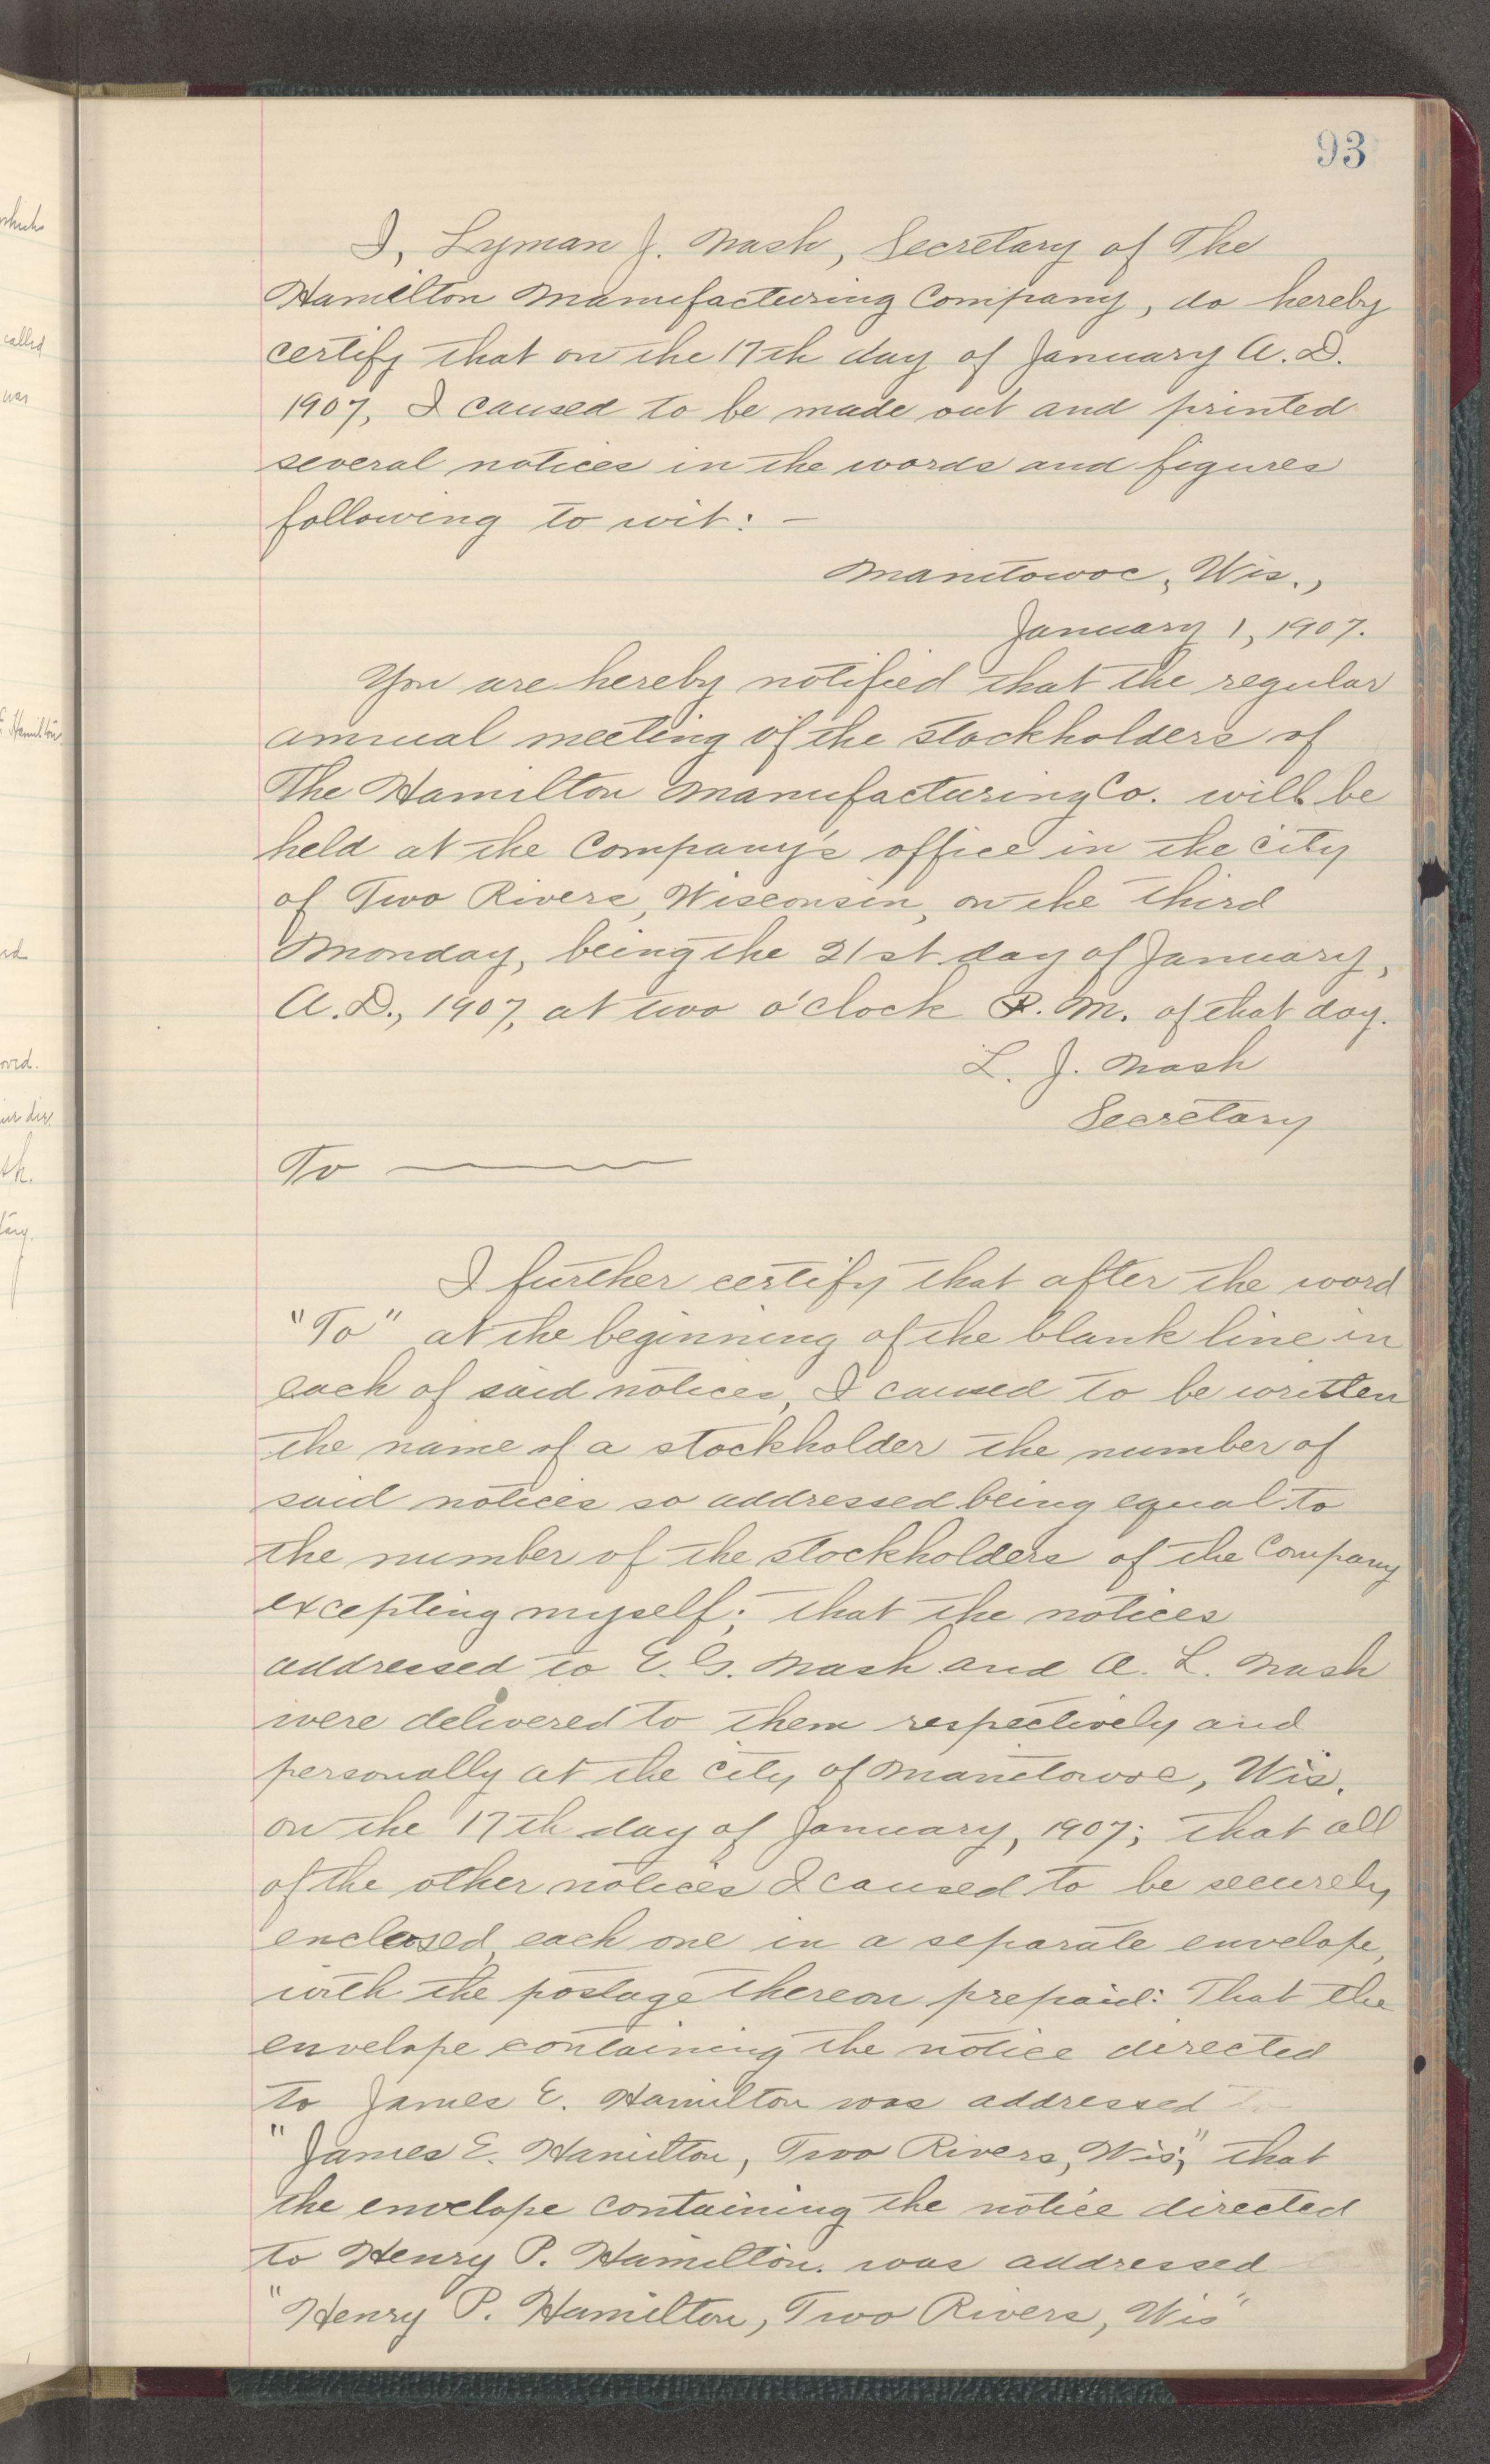 which
called
was
E. Hamilton.
93
I, Lyman J. Nash, Secretary of The
Hamilton Manufacturing Company, do hereby
certify that on the 17th day of January A.D.
1907, I caused to be made out and printed
several notices in the words and figures
following to wit: -
Manitowoc, Wis.,
January 1, 1907.
You are hereby notified that the regular
annual meeting of the stockholders of
The Hamilton Manufacturing Co. will be
held at the Company's office in the city
of Two Rivers, Wisconsin, on the third
Monday, being the 21st day of January,
A.D., 1907, at two o'clock P.M. of that day.
L. J. Nash
Secretary
To
I further certify that after the word
"To" at the beginning of the blank line in
each of said notices, I caused to be written
the name of a stockholder the number of
said notices so addressed being equal to
the number of the stockholders of the Company
excepting myself; that the notices
addressed to E. G. Nash and A. L. Nash
were delivered to them respectively and
personally at the city of Manitowoc, Wis.
on the 17th day of January, 1907; that all
of the other notices I caused to be securely
enclosed, each one in a separate envelope,
with the postage thereon prepaid: That the
envelope containing the notice directed
to James E. Hamilton was addressed to
"James E. Hamilton, Two Rivers, Wis;" that
the envelope containing the notice directed
to Henry P. Hamilton. was addressed
"Henry P. Hamilton, Two Rivers, Wis"